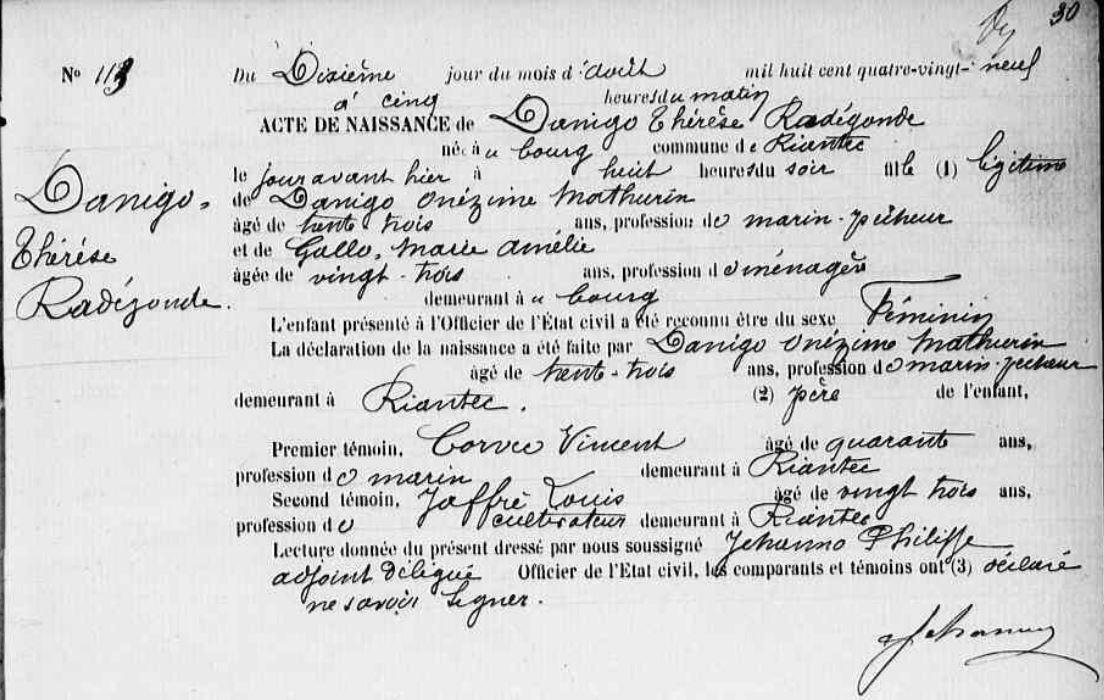 30
N° 113
Du Dixième jour du mois d'août mil huit cent quatre-vingt-neuf
à cinq heures du matin
ACTE DE NAISSANCE de Danigo Thérèse Radégonde
née au bourg commune de Riantec
le jour avant hier à huit heures du soir fille (1) légitime
de Danigo Onézime Mathurin
âgé de trente trois ans, profession de marin-pêcheur
et de Gallo, Marie Amélie
âgée de vingt-trois ans, profession de ménagère
demeurant au bourg
Danigo,
Thérèse
Radégonde.
L'enfant présenté à l'Officier de l'État civil a été reconnu être du sexe Féminin
La déclaration de la naissance a été faite par Danigo Onézime Mathurin
âgé de trente-trois ans, profession de marin-pecheur
demeurant à Riantec. (2) père de l'enfant,
Premier témoin, Corvec Vincent âgé de quarante ans,
profession de marin demeurant à Riantec
Second témoin, Jaffré Louis âgé de vingt trois ans,
profession de cultivateur demeurant à Riantec
Lecture donnée du présent dressé par nous soussigné Jehanno Philippe
adjoint délégué Officier de l'Etat civil, les comparants et témoins ont (3) déclaré
ne savoir signer.
Jehanno